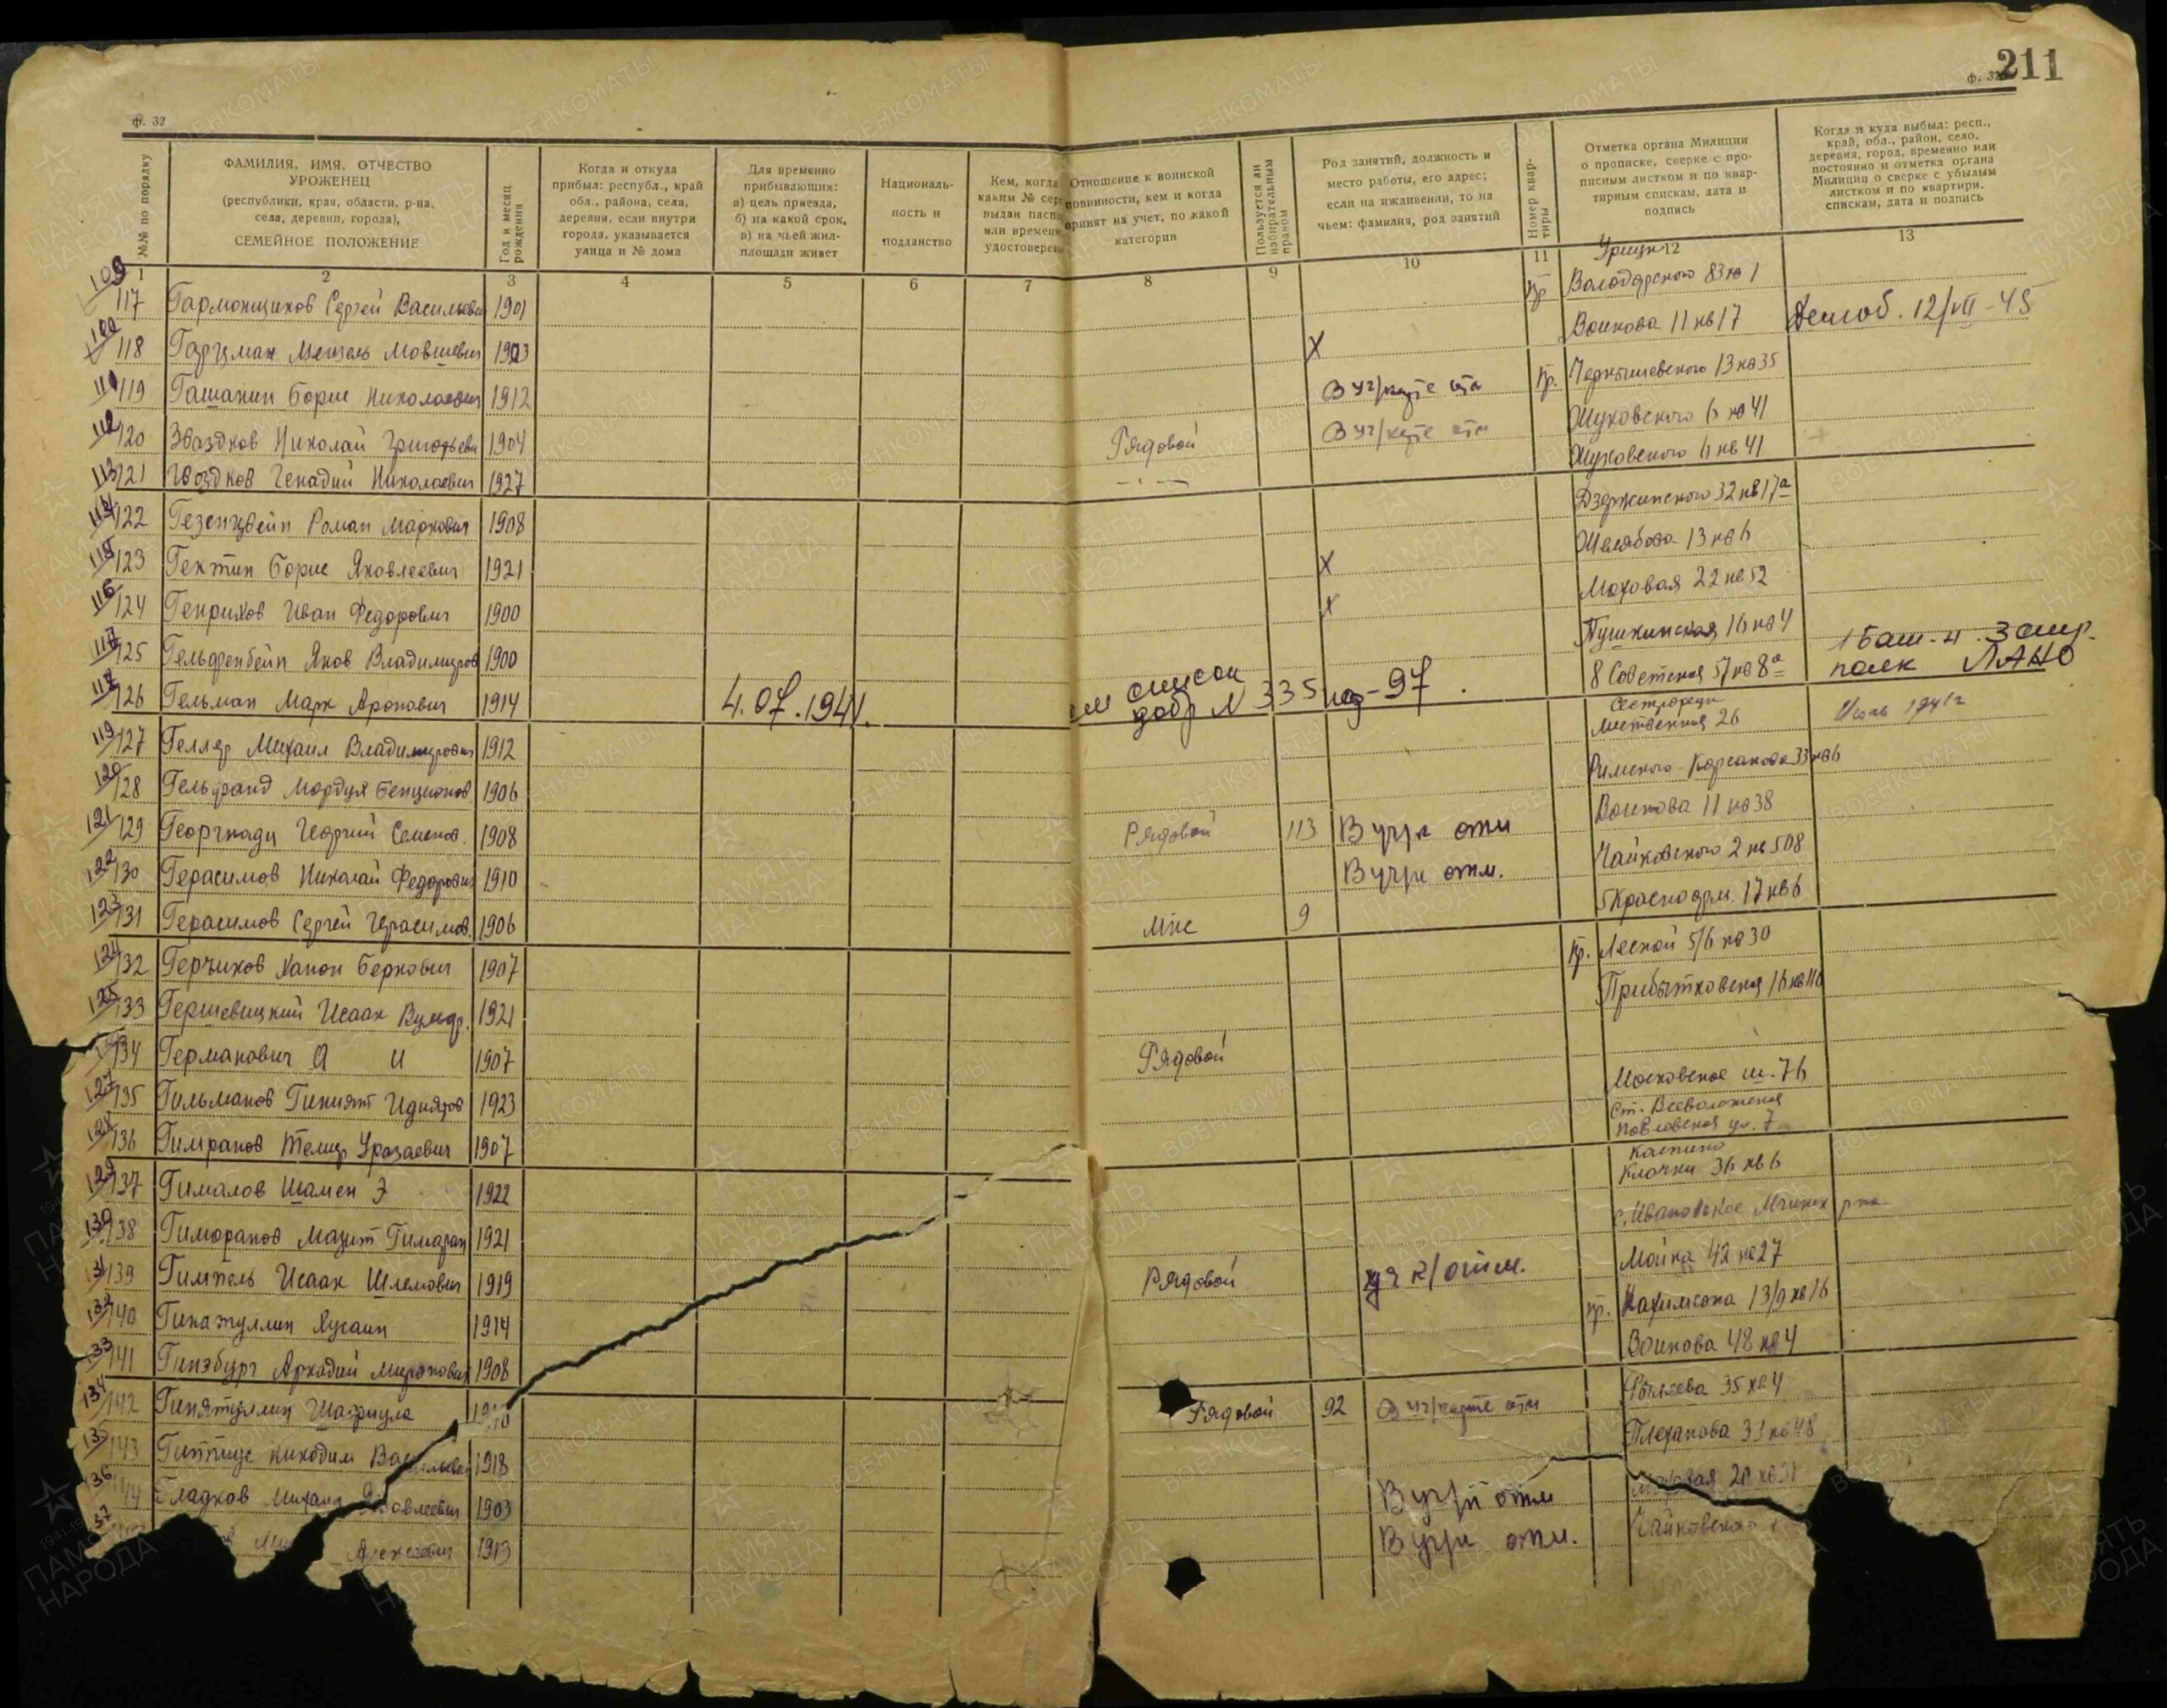 211
ф. 32
ф. 32
№№ по порядку
ФАМИЛИЯ, ИМЯ, ОТЧЕСТВО
УРОЖЕНЕЦ
(республики, края, области, р-на,
села, деревни, города),
СЕМЕЙНОЕ ПОЛОЖЕНИЕ
Год и месяц рождения
Когда и откуда
прибыл: республ., край
обл., района, села,
деревни, если внутри
города, указывается
улица и № дома
Для временно
прибывающих:
а) цель приезда,
б) на какой срок,
в) на чьей жил-
площади живет
Националь-
ность и
подданство
Кем, когда
каким №
выдан
или
Отношение к воинской
повинности, кем и когда
принят на учет, по какой
категории
Пользуется ли избирательным правом
Род занятий, должность и
место работы, его адрес;
если на иждивении, то на
чьем: фамилия, род занятий
Номер квар-
тиры
Отметка органа Милиции
о прописке, сверке с про-
писным листком и по квар-
тирным спискам, дата и
подпись
Когда и куда выбыл: респ.,
край, обл., район, село,
деревня, город, временно или
постоянно и отметка органа
Милиции о сверке с убылым
листком и по квартирн.
спискам, дата и подпись
1 2 3 4 5 6 7 8 9 10 11 12 13
109 117 Гармонщиков Сергей Васильевич 1901 Кр Урицк Володарского 83 кв 1
118 Гарцман Мовшевич 1903 X Воинова 11 кв 17 Демоб. 12/VII-45
119 Гашанин Борис Николаевич 1912 Кр. Чернышевского 13 кв 35
120 Звездков Николай Григорьеви 1904 Рядовой Жуковского 6 кв 41
113 121 Гвоздков Генадий Николаевич 1927 -"- Жуковского 6 кв 41
122 Гезенцвейн Роман Маркович 1908 Дзержинского 32 кв 17а
115 123 Гектин Борис Яковлевич 1921 X Желябова 13 кв 6
116 124 Генрихов Иван Федорович 1900 X Моховая 22 кв 52
117 125 Гельфенбейн Яков Владимиров 1900 Пушкинская 16 кв 4
126 Гельман Марк Аронович 1914 4.07.1941. список добр N 335 -97. 8 Советская 57 кв 8а 1 бат-н. 3 стр. полк ЛАНО
119 127 Геллер Михаил Владимирович 1912 Сестрорецк 26 1941г
120 128 Гельфанд Мордух Бенционов 1906 Римского-Корсакова 33 кв 6
121 129 Георгиади Георгий Семенов. 1908 Рядовой 113 В уч/к отм Воинова 11 кв 38
122 130 Герасимов Николай Федорович 1910 В уч/к отм. Чайковского 2 кв 508
123 131 Герасимов Сергей Герасимов. 1906 Мнс 9 5 Красноарм. 17 кв 6
124 132 Герчиков Ханон Беркович 1907 Кр. Лесной 5/6 кв 30
125 133 Гершевицкий Исаак 1921 Прибытковская 16 кв 110
134 Германович А И 1907 Рядовой
127 135 Гильманов Гиният 1923 Московское ш. 76
136 Гимранов Темир Уразаевич 1907 ст. Всеволожская Павловская ул. 7
129 137 Гималов Шамен Э 1922 Колпино Клочки 36 кв 6
130 138 Гиморанов Мазит Гимаран 1921 с. Ивановское
139 Гимпель Исаак Шлемович 1919 Рядовой уч к/отм. Мойка 42 кв 27
132 140 Гинатуллин Хусаин 1914 Кр. Нахимсона 13/9 кв 16
133 141 Гинзбург Аркадий Миронович 1908 Воинова 48 кв 4
134 142 Гинятуллин Шафиула Рядовой 92 35 кв 4
135 143 Киходим Васильевич 1918 Плеханова 33 кв 48
136 144 Гладков Михаил Яковлевич 1903 В уч/к отм
37 Алексеевич 1913 В уч/к отм. Чайковского
ПАМЯТЬ НАРОДА
ВОЕНКОМАТЫ